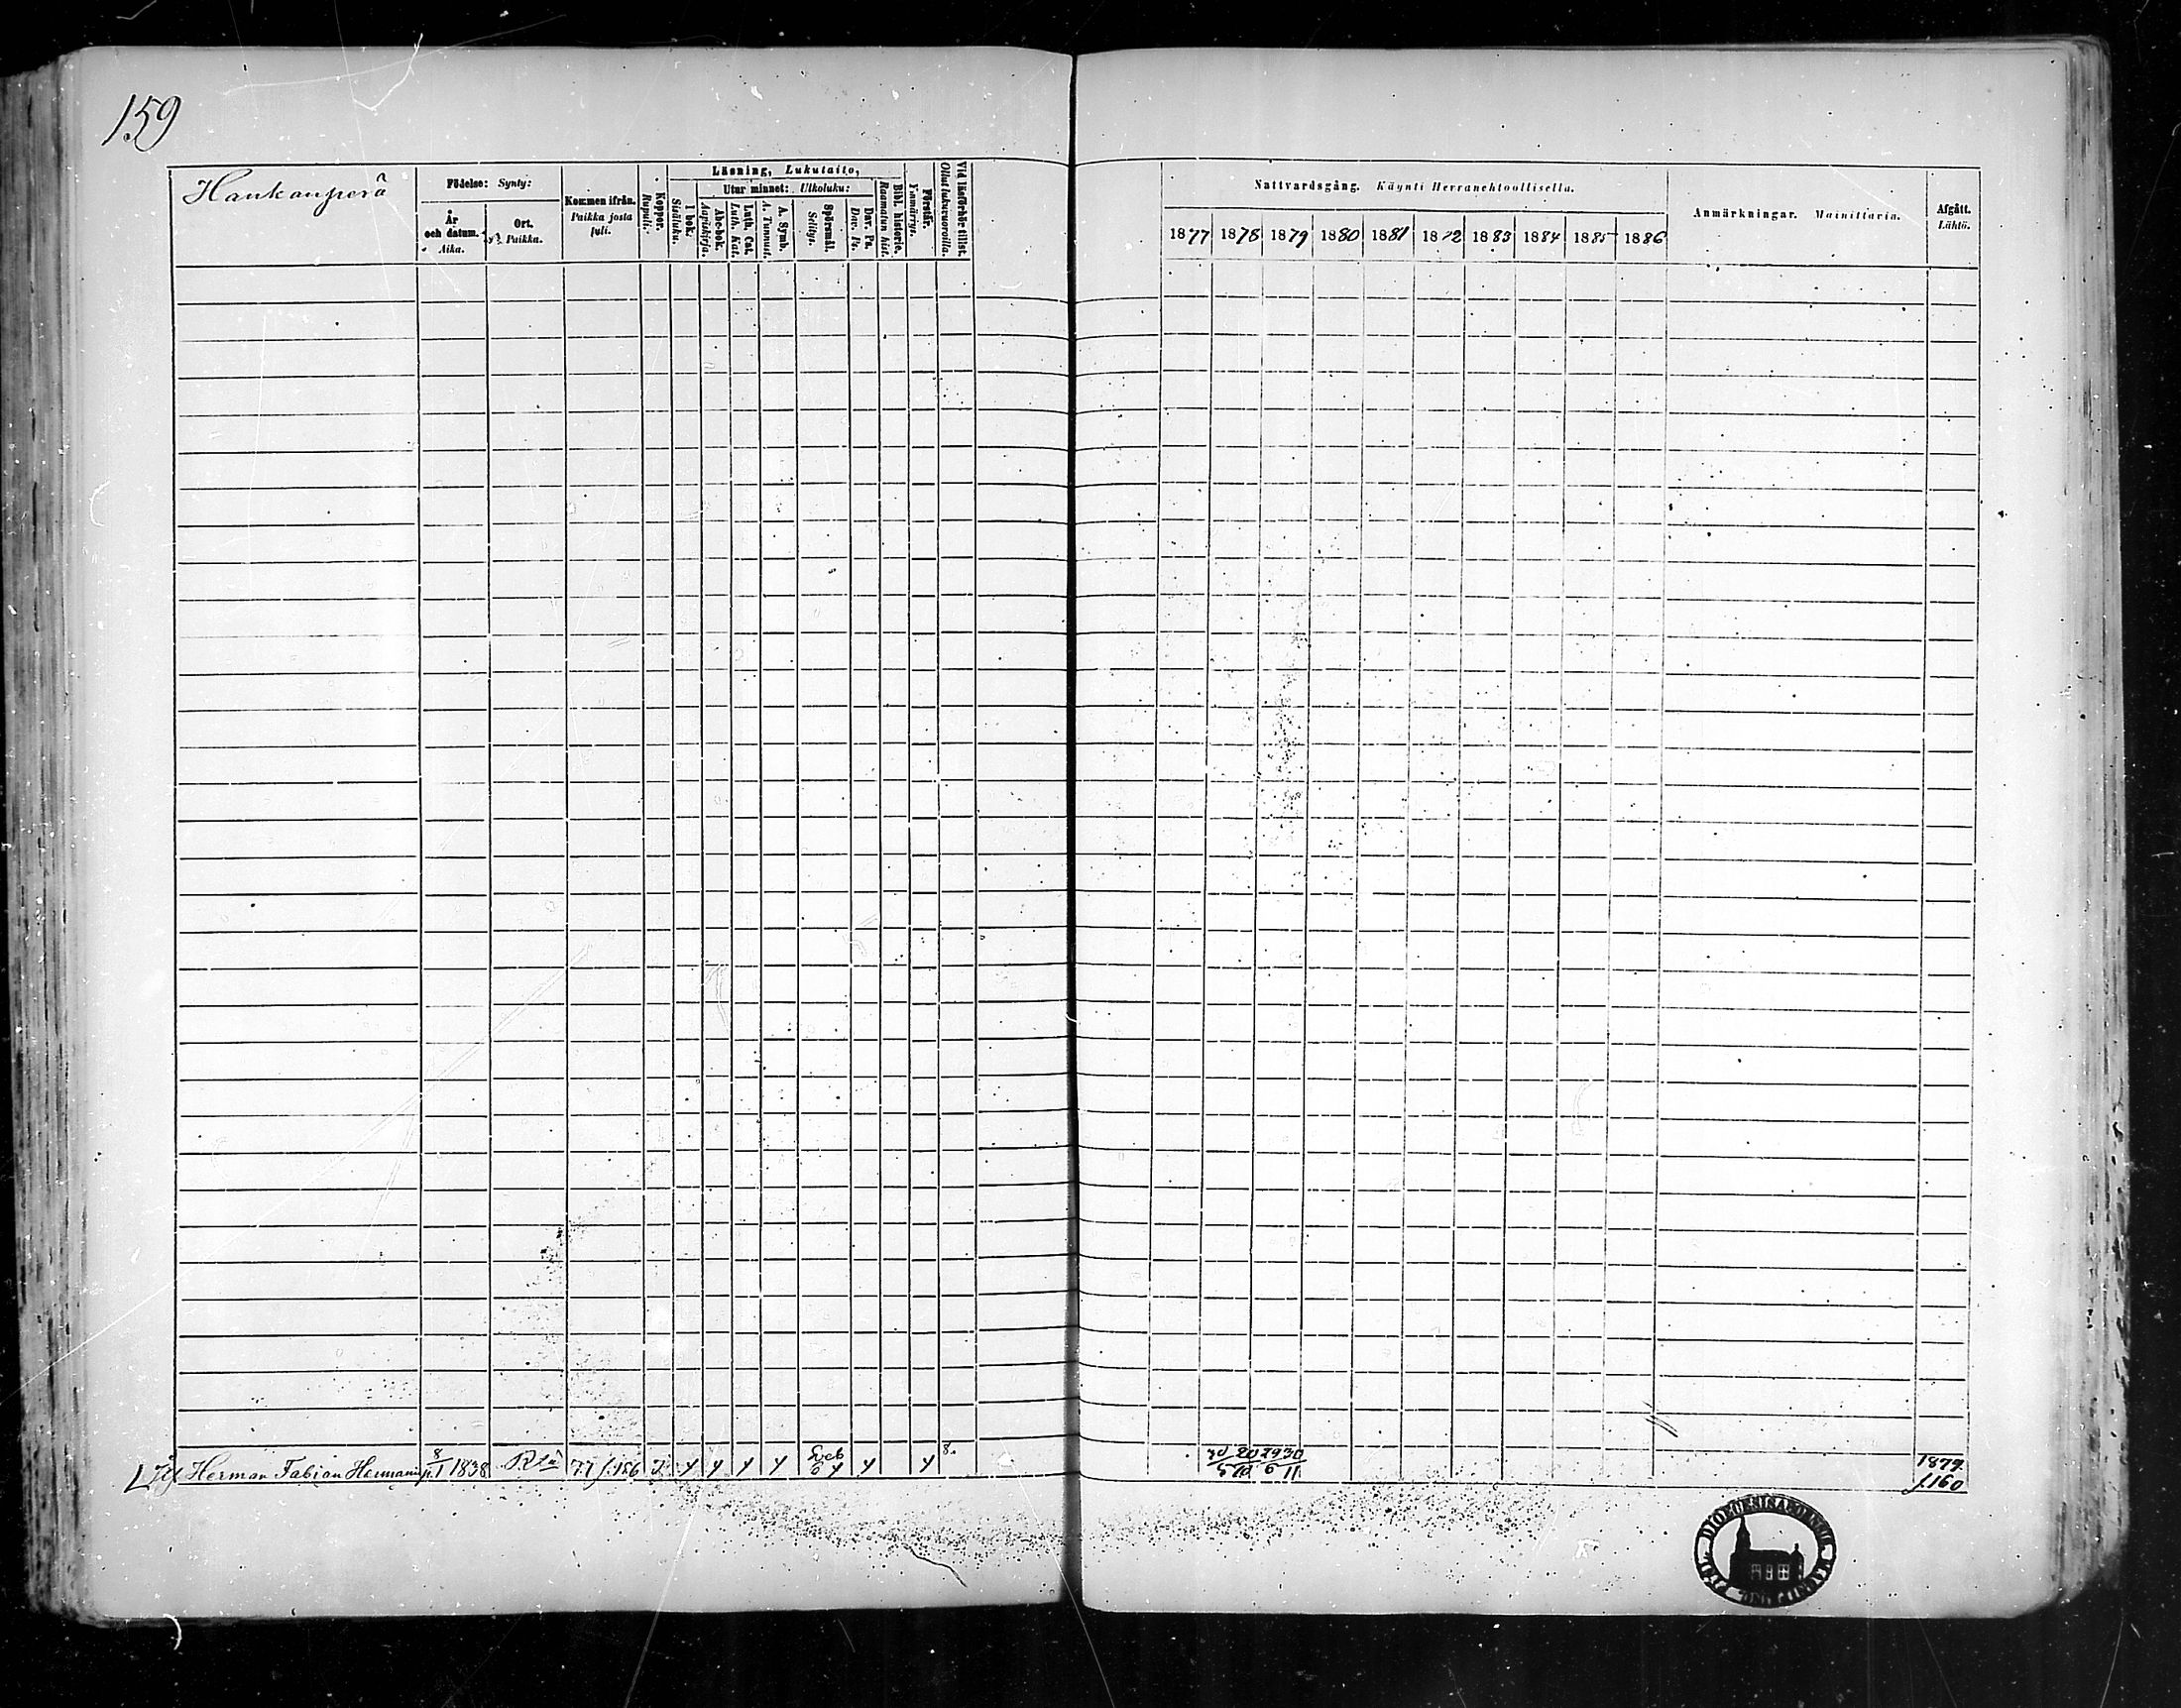 159
Haukanperä
Födelse: Synty:
År och datum. Aika.
Ort. Paikka.
Kommen ifrån. Paikka josta tuli.
Koppor. Rupuli.
Läsning, Lukutaito,
I bok. Sisäluku.
Utur minnet: Ulkoluku:
Abc-bok. Aapiskirja.
Luth. Cat. Luth. Kat.
A. Symb. A. Tunnust.
Spörsmål. Selitys.
Dav. Ps. Dav. Ps.
Bibl. historie. Raamatun hist.
Förstår. Ymmärrys.
Vid läsförhör tillst. Ollut lukuvuoroilla.
Nattvardsgång. Käynti Herranehtoollisella.
1877 1878 1879 1880 1881 1882 1883 1884 1885 1886
Anmärkningar. Mainittavia.
Afgått. Lähtö.
Herman Fabian 8/1 1838 77 f.156
1879
f.160